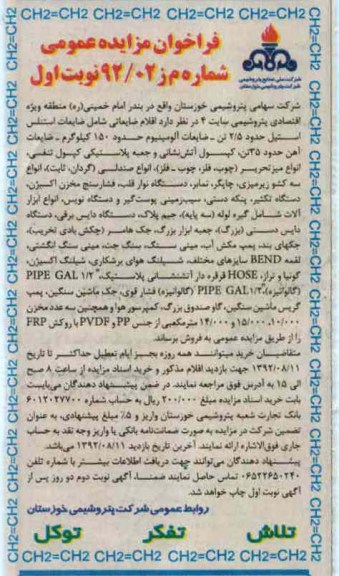 CH2=CH2 CH2=CH2 CH2=CH2 CH2=CH2 CH2=CH2
فراخوان مزایده عمومی
شماره م ز ۹۲/۰۲ نوبت اول
شرکت ملی صنایع پتروشیمی
شرکت پتروشیمی خوزستان
شرکت سهامی پتروشیمی خوزستان واقع در بندر امام خمینی(ره) منطقه ویژه
اقتصادی پتروشیمی سایت ۴ در نظر دارد اقلام ضایعاتی شامل ضایعات استنلس
استیل حدود ۲/۵ تن - ضایعات آلومینیوم حدود ۱۵۰ کیلوگرم - ضایعات
آهن حدود ۳۵تن، کپسول آتش‌نشانی و جعبه پلاستیکی کپول تنفسی،
انواع میزتحریر (چوب، فلز، چوب - فلز)، انواع صندلی (گردان، ثابت)، انواع
سه کشو زیرمیزی، چاپگر، نمابر، دستگاه نوار قلب، فشارسنج مخزن اکسیژن،
دستگاه تکثیر، پنکه دستی، سیب‌زمینی پوست‌گیر و دستگاه نویس، انواع ابزار
آلات شامل گیره لوله (سه پایه)، جیم پلاک، دستگاه دایس برقی، دستگاه
دایس دستی (بزرگ)، جعبه ابزار بزرگ، جک هامر (چکش بادی تخریب)،
جکهای بند، پمپ مکش آب، مینی سنگ، سنگ جت، مینی سنگ انگشتی،
لقمه BEND سایزهای مختلف، شیلنگ هوای برشکاری، شیلنگ اکسیژن،
گونیا و تراز، HOSE قرقره دار آتشنشانی پلاستیک، PIPE GAL ۱/۲
(گالوانیزه)، PIPE GAL ۱/۳ (گالوانیزه) فشار قوی، جک ماشین سنگین، پمپ
گریس ماشین سنگین، گاو صندوق بزرگ، کمپرسور هوا و همچنین سه عدد مخزن
۱۰/۰۰۰، ۱۵/۰۰۰ و ۱۴/۰۰۰ مترمکعبی از جنس PP و PVDF با روکش FRP
را از طریق مزایده عمومی به فروش برساند.
متقاضیان خرید میتوانند همه روزه بجز ایام تعطیل حداکثر تا تاریخ
۱۳۹۲/۰۸/۱۱ جهت بازدید اقلام مذکور و خرید اسناد مزایده از ساعت ۸ صبح
الی ۱۵ به آدرس فوق مراجعه نمایند. در ضمن پیشنهاد دهندگان می‌بایست
بابت خرید اسناد مزایده مبلغ ۲۰۰/۰۰۰ ریال به حساب شماره ۶۰۱۲۰۲۷۷۰۰
بانک تجارت شعبه پتروشیمی خوزستان واریز و ۵٪ مبلغ پیشنهادی، به عنوان
تضمین شرکت در مزایده به صورت ضمانت‌نامه بانکی یا واریز وجه نقد به حساب
جاری فوق‌الاشاره ارائه نمایند. آخرین تاریخ بازدید ۱۳۹۲/۰۸/۱۱ می‌باشد.
پیشنهاد دهندگان می‌توانند جهت دریافت اطلاعات بیشتر با شماره تلفن
۰۶۵۲۲۶۵۰۲۴۰ تماس حاصل نمایند ضمناً، آگهی نوبت دوم دو روز پس از
آگهی نوبت اول چاپ خواهد شد.
روابط عمومی شرکت پتروشیمی خوزستان
تلاش تفکر توکل
CH2=CH2 CH2=CH2 CH2=CH2 CH2=CH2 CH2=CH2